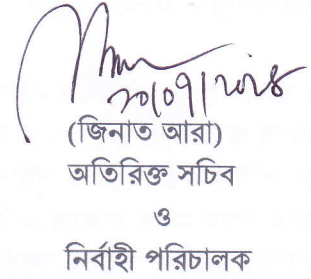 ২০/০৭/২০২৪
(জিনাত আরা)
অতিরিক্ত সচিব
ও
নির্বাহী পরিচালক